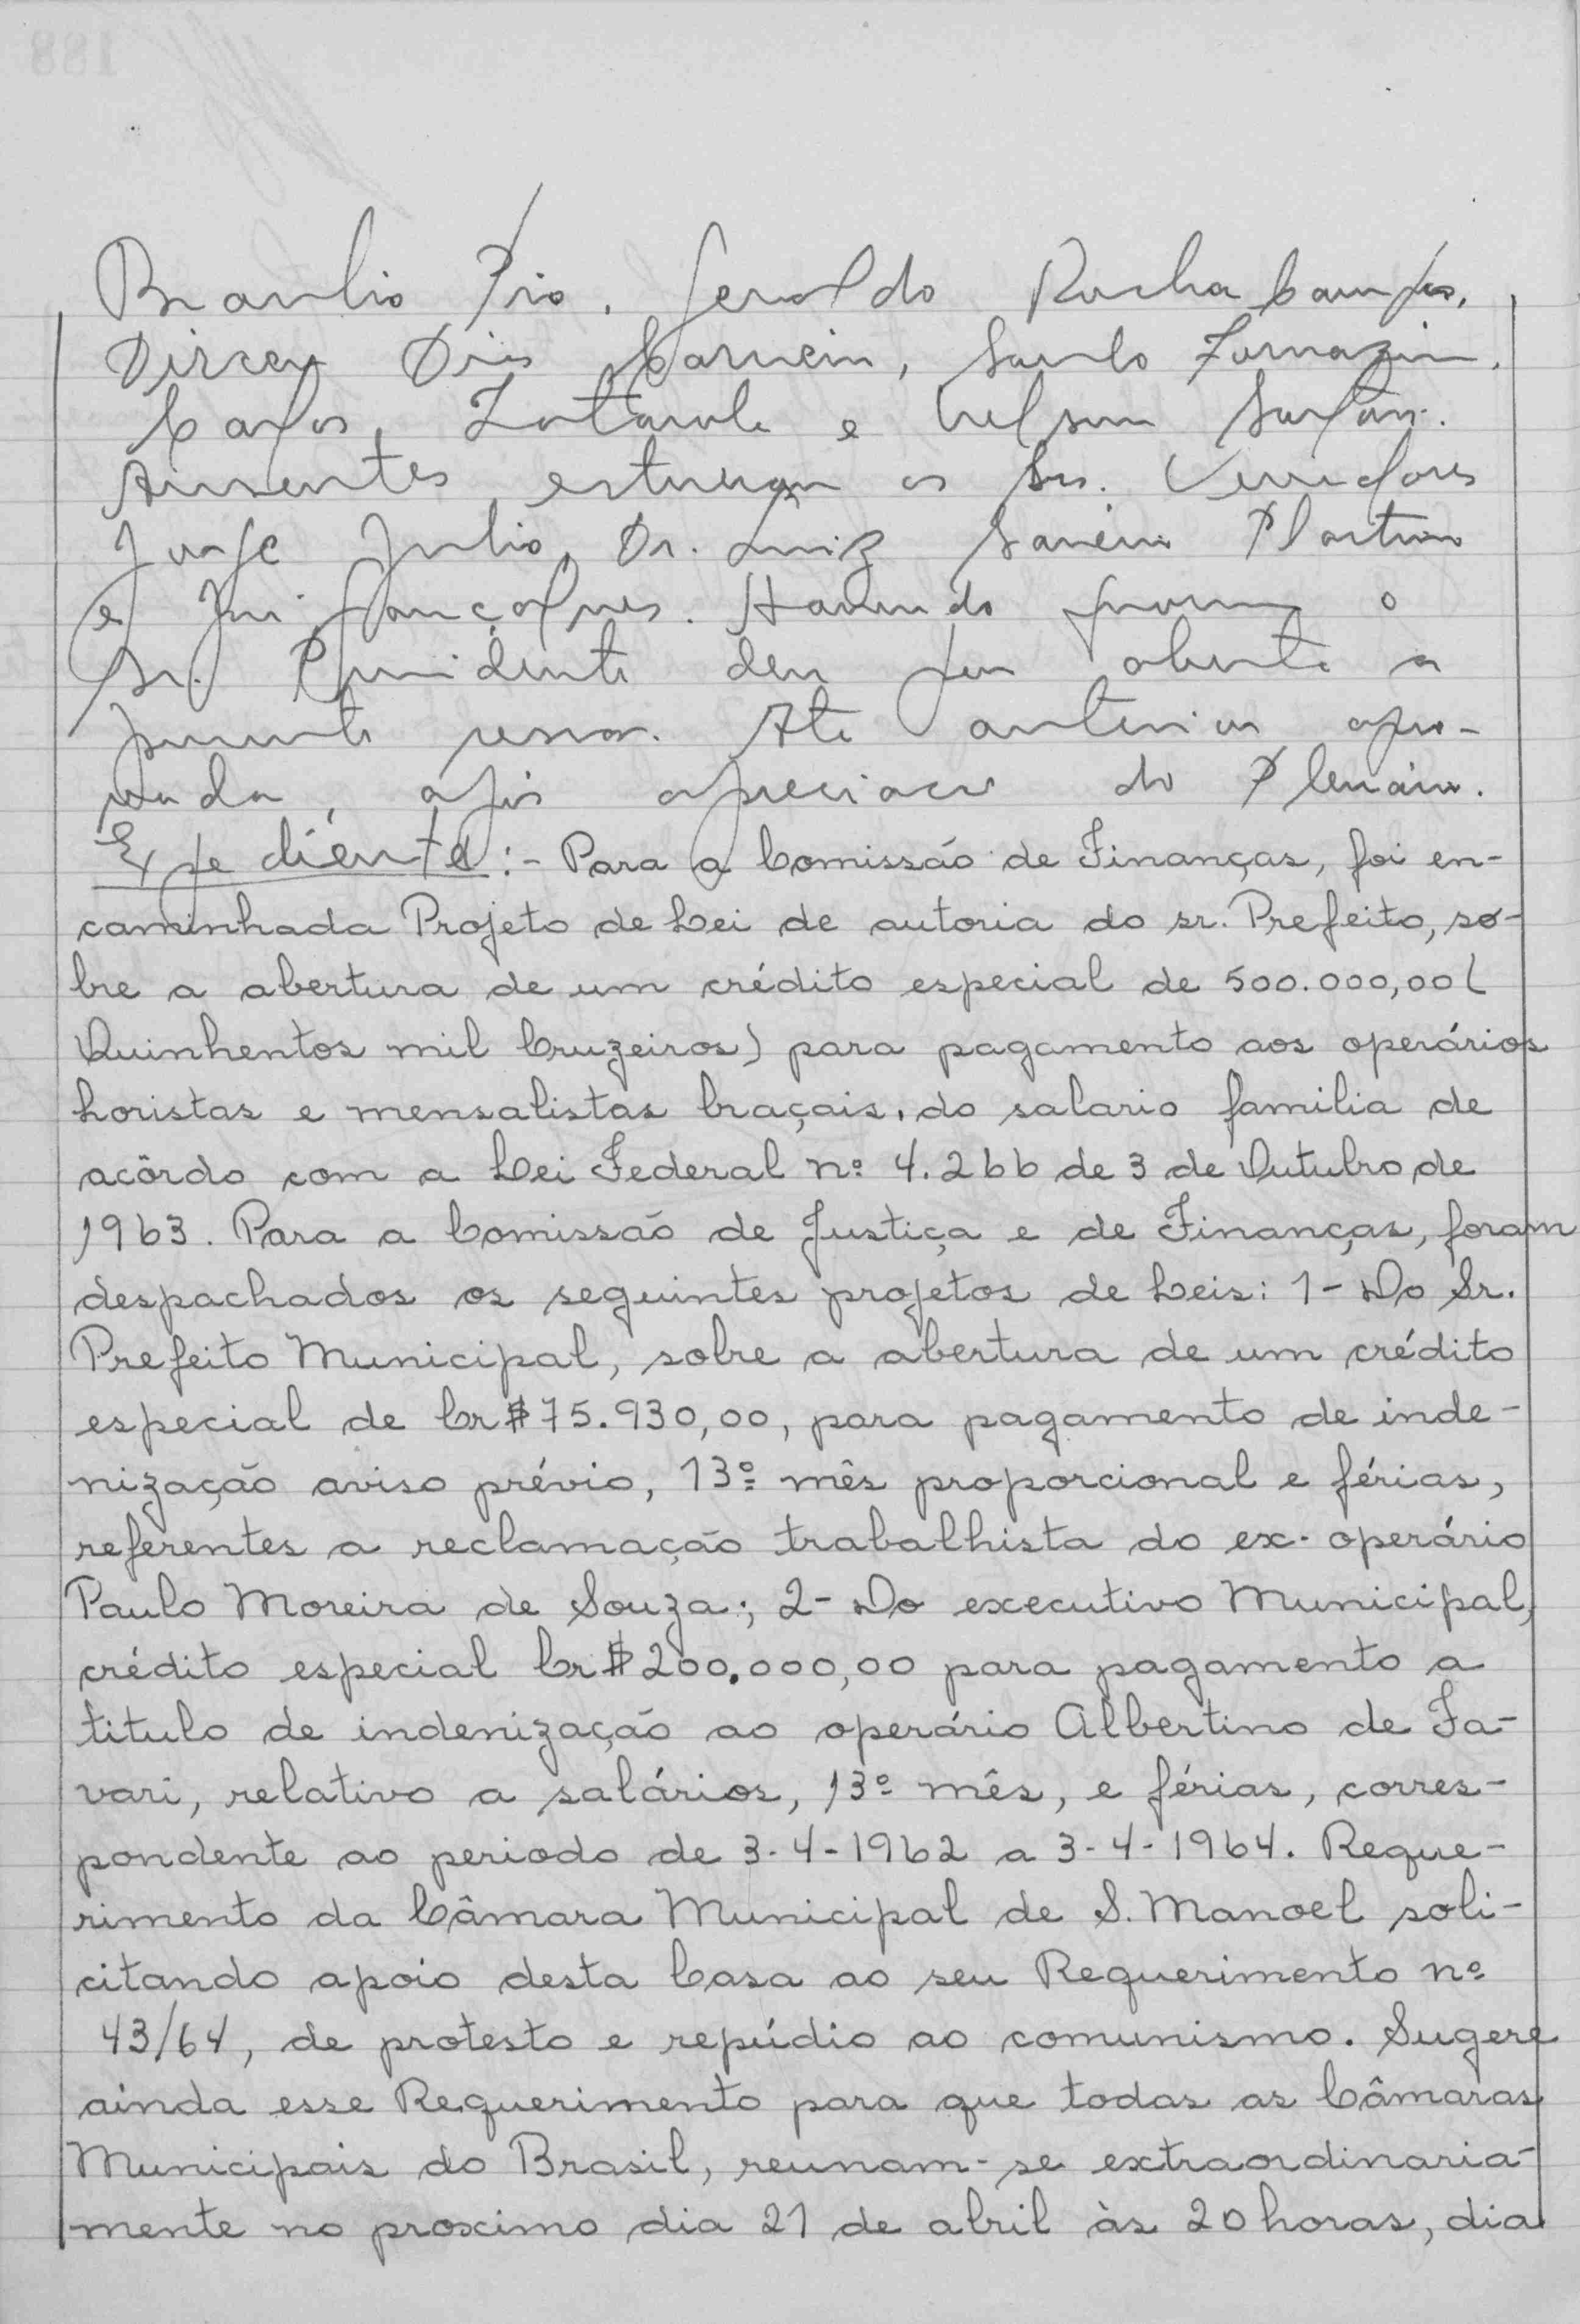 Braulio Pio. Geraldo Rocha Campos,
Dirceu Dias Carneiro, Saulo Fornazin,
Carlos Zattarole e Nelson
Ausentes estiveram os Srs. Vereadores
Jorge Julio, Dr. Luiz Saverio
e Gonçalves. Havendo o
Sr. Presidente deu por aberta a
presente sessão. Ata anterior apro-
vada, após apreciacao do Plenário.
Expediente:- Para a Comissão de Finanças, foi en-
caminhada Projeto de Lei de autoria do sr. Prefeito, sô-
bre a abertura de um crédito especial de 500.000,00 (
Quinhentos mil Cruzeiros) para pagamento aos operários
horistas e mensalistas braçais, do salario familia de
acôrdo com a Lei Federal nº 4.266 de 3 de Outubro de
1963. Para a Comissão de Justiça e de Finanças, foram
despachados os seguintes projetos de Leis: 1- Do Sr.
Prefeito Municipal, sobre a abertura de um crédito
especial de Cr$75.930,00, para pagamento de inde-
nização aviso prévio, 13º mês proporcional e férias,
referentes a reclamação trabalhista do ex-operário
Paulo Moreira de Souza; 2- Do executivo Municipal,
crédito especial Cr$200.000,00 para pagamento a
titulo de indenização ao operário Albertino de Fa-
vari, relativo a salários, 13º mês, e férias, corres-
pondente ao periodo de 3-4-1962 a 3-4-1964. Reque-
rimento da Câmara Municipal de S. Manoel soli-
citando apoio desta Casa ao seu Requerimento nº
43/64, de protesto e repúdio ao comunismo. Sugere
ainda esse Requerimento para que todas as Câmaras
Municipais do Brasil, reunam-se extraordinaria-
mente no proximo dia 21 de abril às 20 horas, dia